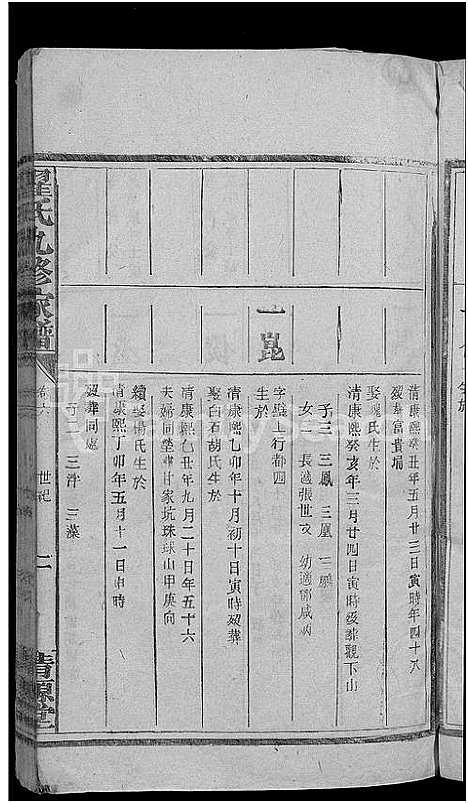 清康熙癸丑年五月廿三日寅時年四十八
歿葬富貴塌
娶魏氏生於
清康熙癸亥年三月廿四日寅時歿葬觀下山
子三 三鳳 三凰 三鵬
女二 長適張世 幼適鄧咸
一崑
字 上行都四
生於
清康熙乙卯年十月初十日寅時歿葬
娶白石胡氏生於
清康熙己丑年九月二十日年五十六
夫婦同塋葬甘家坑珠球山甲庚向
續娶楊氏生於
清康熙丁卯年五月十一日申時
歿葬同處
子二 三泮 三藻
翟氏九修宗譜
卷六 世紀
清源堂